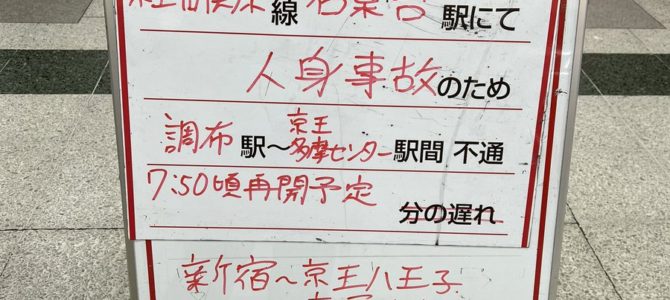 線 若葉台 駅にて
人身事故のため
調布 駅～京王多摩センター駅間 不通
7:50頃再開予定 分の遅れ
新宿～京王八王子